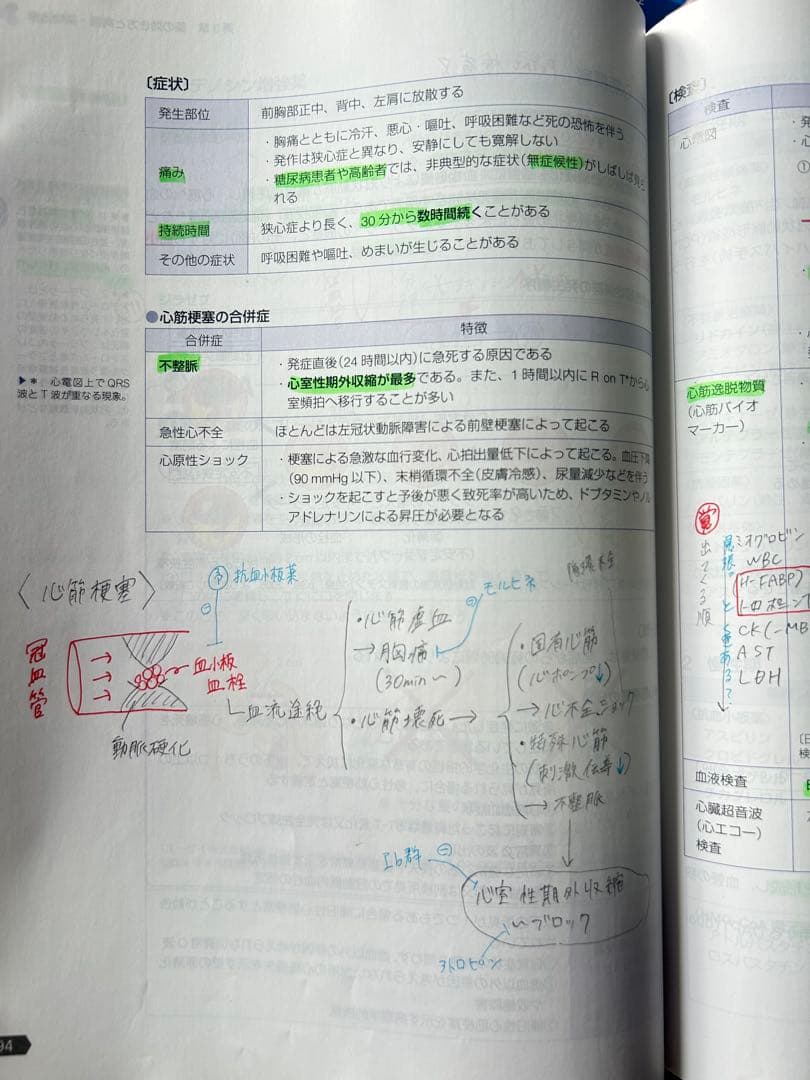 〔症状〕
発生部位
前胸部正中、背中、左肩に放散する
痛み
・胸痛とともに冷汗、悪心・嘔吐、呼吸困難など死の恐怖を伴う
・発作は狭心症と異なり、安静にしても寛解しない
・糖尿病患者や高齢者では、非典型的な症状（無症候性）がしばしば
れる
持続時間
狭心症より長く、30分から数時間続くことがある
その他の症状
呼吸困難や嘔吐、めまいが生じることがある
●心筋梗塞の合併症
合併症
特徴
不整脈
・発症直後（24時間以内）に急死する原因である
・心室性期外収縮が最多である。また、1時間以内にR on T*から心
室頻拍へ移行することが多い
急性心不全
ほとんどは左冠状動脈障害による前壁梗塞によって起こる
心原性ショック
・梗塞による急激な血行変化、心拍出量低下によって起こる。血圧下降
（90 mmHg 以下）、末梢循環不全（皮膚冷感）、尿量減少などを伴う
・ショックを起こすと予後が悪く致死率が高いため、ドブタミンやノル
アドレナリンによる昇圧が必要となる
▶＊ 心電図上でQRS
波とT波が重なる現象。
〈心筋梗塞〉
予 抗血小板薬
⊖
冠血管
血小板
血栓
動脈硬化
血流途絶
・心筋虚血
→胸痛
(30min〜)
⊖ モルヒネ
・心筋壊死 →
循環不全
・固有心筋
(心ポンプ↓)
→心不全、ショック
・特殊心筋
(刺激伝導↓)
→不整脈
Ⅰb群 ⊖
心室性期外収縮
〜ブロック
アトロピン
94
〔検査〕
検査
心電図
①
心筋逸脱物質
（心筋バイオ
マーカー）
覚
出てくる順
ミオグロビン
WBC
(H-FABP)
トロポニンT
CK(-MB
AST
LDH
血液検査
心臓超音波
（心エコー）
検査